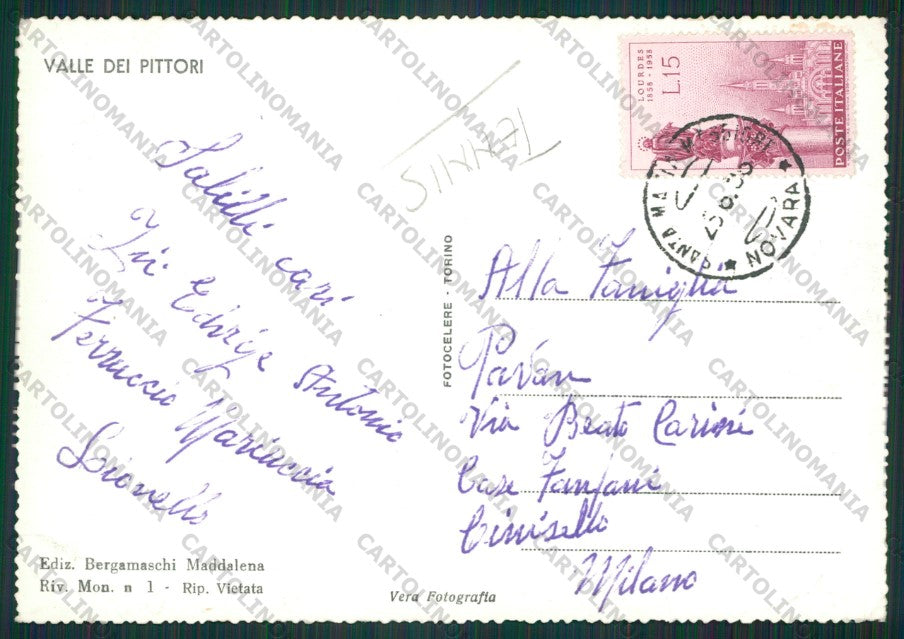 VALLE DEI PITTORI
TENNIS
LOURDES
1858 - 1958
L.15
POSTE ITALIANE
SANTA MARIA MAGGIORE
NOVARA
Saluti cari
Zii Edvige Antonio
Ferruccio Mariuccia
Lionello
FOTOCELERE - TORINO
Alla Famiglia
Pavan
Via Beato Carino
Case Fanfani
Cinisello
Milano
Ediz. Bergamaschi Maddalena
Riv. Mon. n 1 - Rip. Vietata
Vera Fotografia
CARTOLINOMANIA